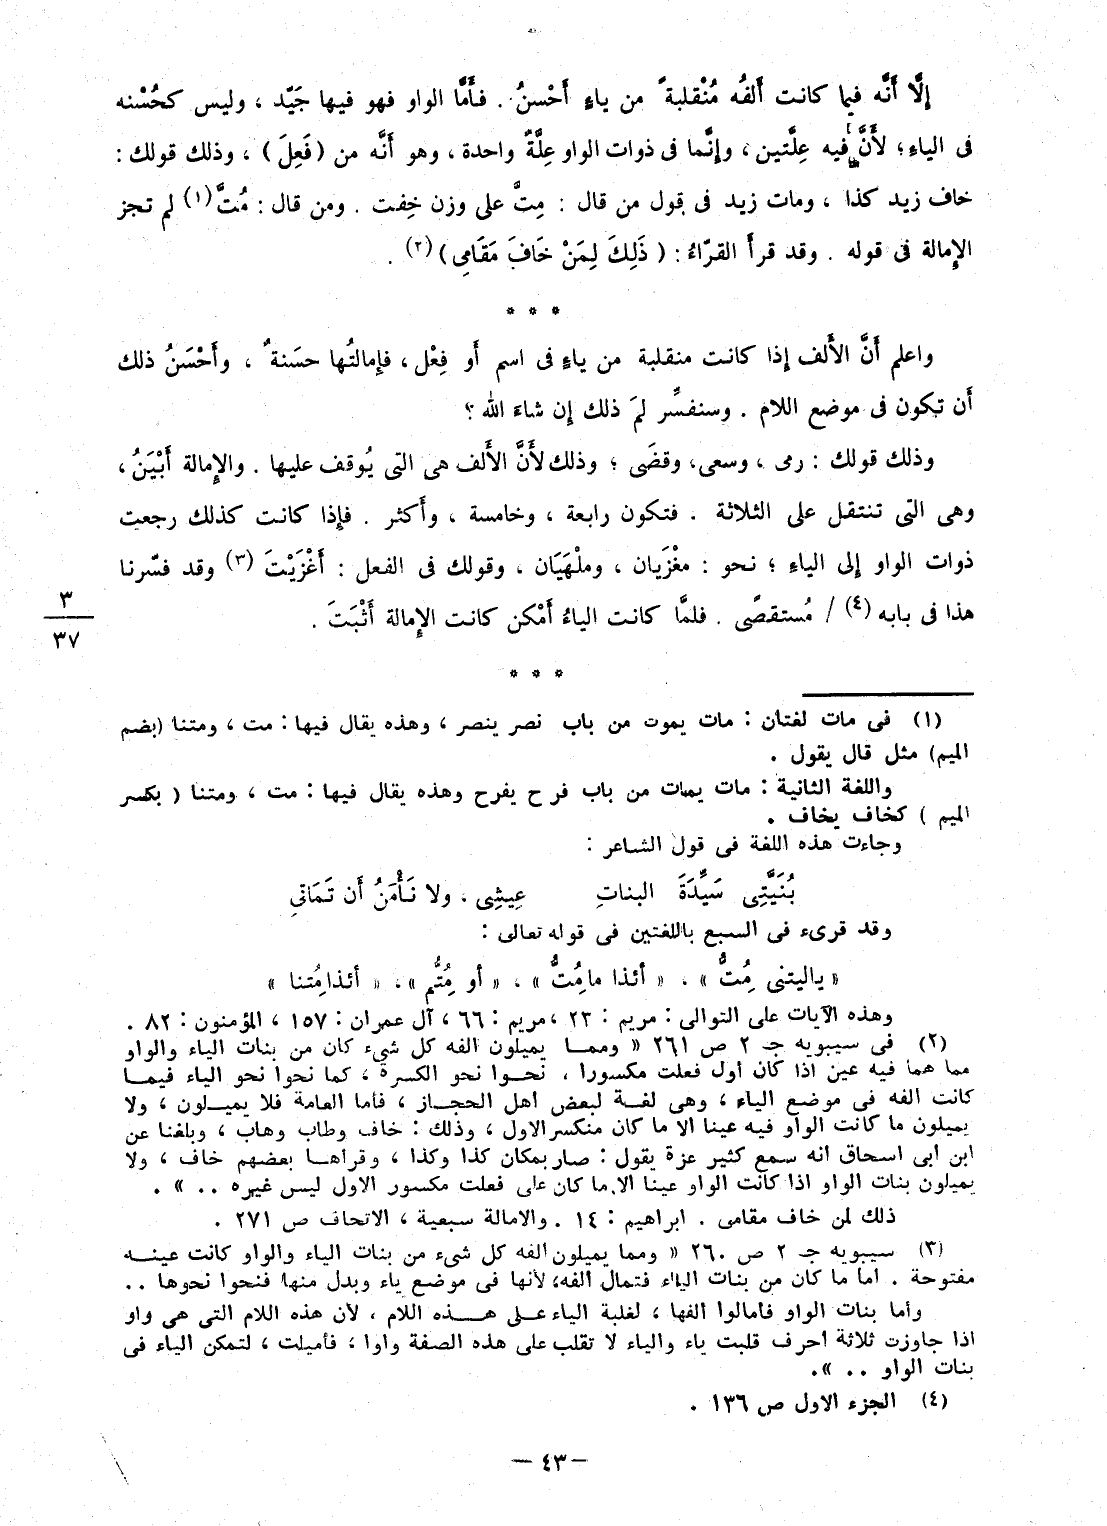 إلَّا أَنَّه فيما كانت أَلفُه مُنْقلبةً من ياءٍ أَحْسنُ . فأَمَّا الواو فهو فيها جَيِّد ، وليس كحُسْنه
فى الياءِ ؛ لأَنَّ فيه عِلَّتين ، وإنَّما فى ذوات الواو عِلَّةٌ واحدة ، وهو أَنَّه من ( فَعِلَ ) ، وذلك قولك :
خاف زيد كذا ، ومات زيد فى قول من قال : مِتَّ على وزن خِفت . ومن قال : مُتَّ (١) لم تجز
الإِمالة فى قوله . وقد قرأَ القرّاءُ : ( ذَلِكَ لِمَنْ خَافَ مَقَامِى ) (٢) .
* * *
واعلم أَنَّ الأَلف إذا كانت منقلبة من ياءٍ فى اسم أَو فِعْل ، فإمالتُها حسَنةٌ ، وأَحْسَنُ ذلك
أَن تكون فى موضع اللام . وسنفسِّر لمَ ذلك إن شاءَ الله ؟
وذلك قولك : رمى ، وسعى، وقضَى ؛ وذلك لأَنَّ الأَلف هى التى يُوقف عليها . والإِمالة أَبْيَنُ ،
وهى التى تنتقل على الثلاثة . فتكون رابعة ، وخامسة ، وأَكثر . فإِذا كانت كذلك رجعت
ذوات الواو إلى الياءِ ؛ نحو : مغْزَيان ، وملْهَيَان ، وقولك فى الفعل : أَغْزَيْتَ (٣) وقد فسّرنا
هذا فى بابه (٤) / مُستقصًى . فلمَّا كانت الياءُ أَمْكن كانت الإِمالة أَثْبَتَ .
٣
٣٧
* * *
(١) فى مات لغتان : مات يموت من باب نصر ينصر ، وهذه يقال فيها : مت ، ومتنا (بضم
الميم) مثل قال يقول .
واللغة الثانية : مات يمات من باب فرح يفرح وهذه يقال فيها : مت ، ومتنا ( بكسر
الميم ) كخاف يخاف .
وجاءت هذه اللغة فى قول الشاعر :
بُنَيَّتِى سَيِّدَةَ البناتِ عِيشِى ، ولا نَأْمَنُ أن تَمَاتِى
وقد قرىء فى السبع باللغتين فى قوله تعالى :
« ياليتنى مِتُّ » ، « أئذا مامِتُّ » ، « أو مِتُّم » ، « أئذامِتنا »
وهذه الآيات على التوالى : مريم : ٢٣ ،مريم : ٦٦ ، آل عمران : ١٥٧ ، المؤمنون : ٨٢ .
(٢) فى سيبويه جـ ٢ ص ٢٦١ « ومما يميلون الفه كل شىء كان من بنات الياء والواو
مما هما فيه عين اذا كان أول فعلت مكسورا ، نحوا نحو الكسرة ، كما نحوا نحو الياء فيما
كانت الفه فى موضع الياء ، وهى لغة لبعض أهل الحجاز ، فأما العامة فلا يميلون ، ولا
يميلون ما كانت الواو فيه عينا الا ما كان منكسر الاول ، وذلك : خاف وطاب وهاب ، وبلغنا عن
ابن ابى اسحاق انه سمع كثير عزة يقول : صار بمكان كذا وكذا ، وقراها بعضهم خاف ، ولا
يميلون بنات الواو اذا كانت الواو عينا الا ما كان على فعلت مكسور الاول ليس غيره .. » .
ذلك لمن خاف مقامى . ابراهيم : ١٤ . والامالة سبعية ، الاتحاف ص ٢٧١ .
(٣) سيبويه جـ ٢ ص ٢٦٠ « ومما يميلون الفه كل شىء من بنات الياء والواو كانت عينه
مفتوحة . أما ما كان من بنات الياء فتمال الفه؛ لأنها فى موضع ياء وبدل منها فنحوا نحوها ..
وأما بنات الواو فأمالوا الفها ، لغلبة الياء على هذه اللام ، لأن هذه اللام التى هى واو
اذا جاوزت ثلاثة أحرف قلبت ياء والياء لا تقلب على هذه الصفة واوا ؛ فأميلت ، لتمكن الياء فى
بنات الواو .. ».
(٤) الجزء الاول ص ١٣٦ .
— ٤٣ —